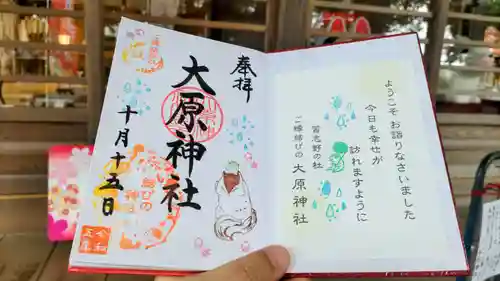 ようこそ お詣りなさいました
今日も幸せが
訪れますように
習志野の杜
ご縁結びの 大原神社
奉拝
大原神社
十月十五日
令和
五年